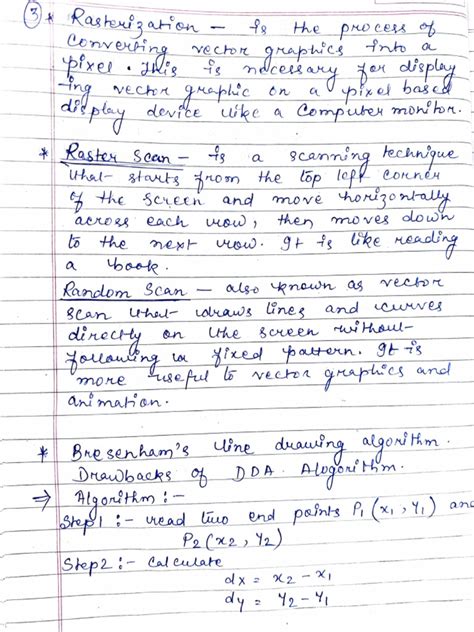 ③ * Rasterization – is the process of
converting vector graphics into a
pixel. This is necessary for display
-ing vector graphic on a pixel based
display device like a computer monitor.
* Raster Scan – is a scanning technique
that starts from the top left corner
of the screen and move horizontally
across each row, then moves down
to the next row. It is like reading
a book.
Random Scan – also known as vector
scan that draws lines and curves
directly on the screen without
following a fixed pattern. It is
more useful to vector graphics and
animation.
* Bresenham's line drawing algorithm.
Drawbacks of DDA Alogorithm.
⇒ Algorithm :–
Step 1 :– read two end points P₁ (x₁, y₁) and
P₂ (x₂, y₂)
Step 2 :– Calculate
dx = x₂ – x₁
dy = y₂ – y₁